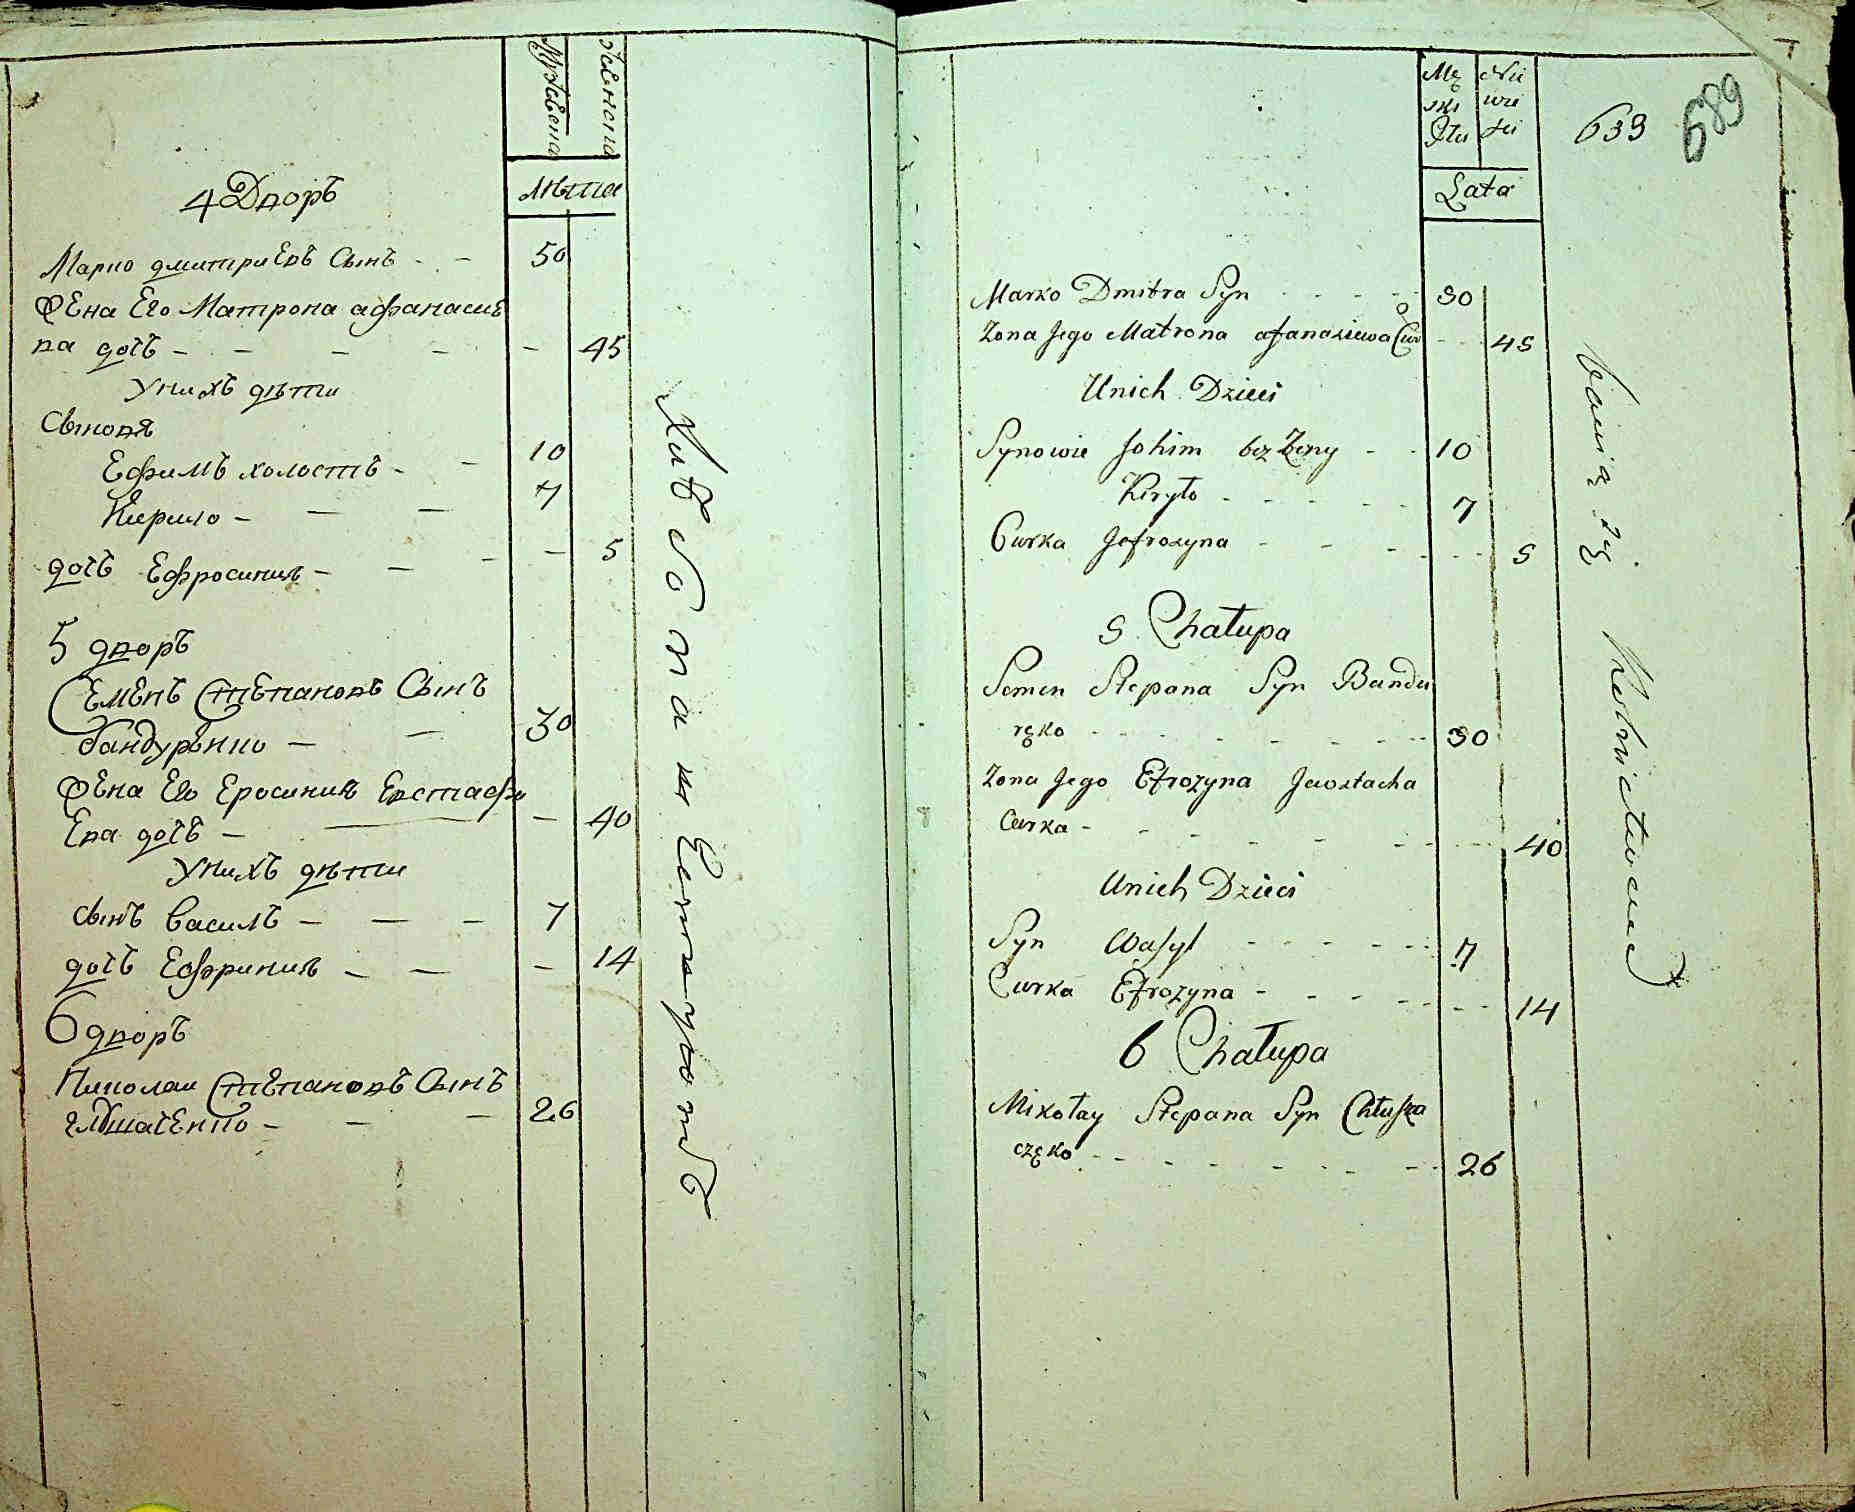 Мужеска
Женска
Лѣта
4 Дворъ
Марко дмитриевъ Сынъ - - 50
Жена Его Матрона афанасие
ва дочь - - - - - 45
У нихъ дѣти
Сыновя
Ефимъ холостъ - - 10
Кирило - - - 7
дочь Ефросиния - - - - 5
5 дворъ
Семенъ Степановъ Сынъ
бандуренко - - 30
Жена Его Еросиния Евстафи
Ева дочь - - 40
У нихъ дѣти
сынъ василь - - - 7
дочь Ефриния - - - 14
6 дворъ
Николаи Степановъ Сынъ
глушаченко - - - 26
Хлѣбопашествуютъ
Mę
ski
Płci
Nie
wie
ści
Lata
639
689
Marko Dmitra Syn - - - - 50
Zona Jego Matrona afanasiewa Cur - - 45
Unich Dzieci
Synowie Johim bez Żeny - - 10
Kiryło - - - - - 7
Curka Jefrozyna - - - - - 5
5 Chałupa
Semen Stepana Syn Bandu
ręko - - - - - - - - 30
Zona Jego Efrozyna Jewstacha
Curka - - - - - - - 40
Unich Dzieci
Syn Wasyl - - - - - 7
Curka Efrozyna - - - - - - 14
6 Chałupa
Mikołay Stepana Syn Chłusza
częko - - - - - - - - 26
bawią się Rolnictwem